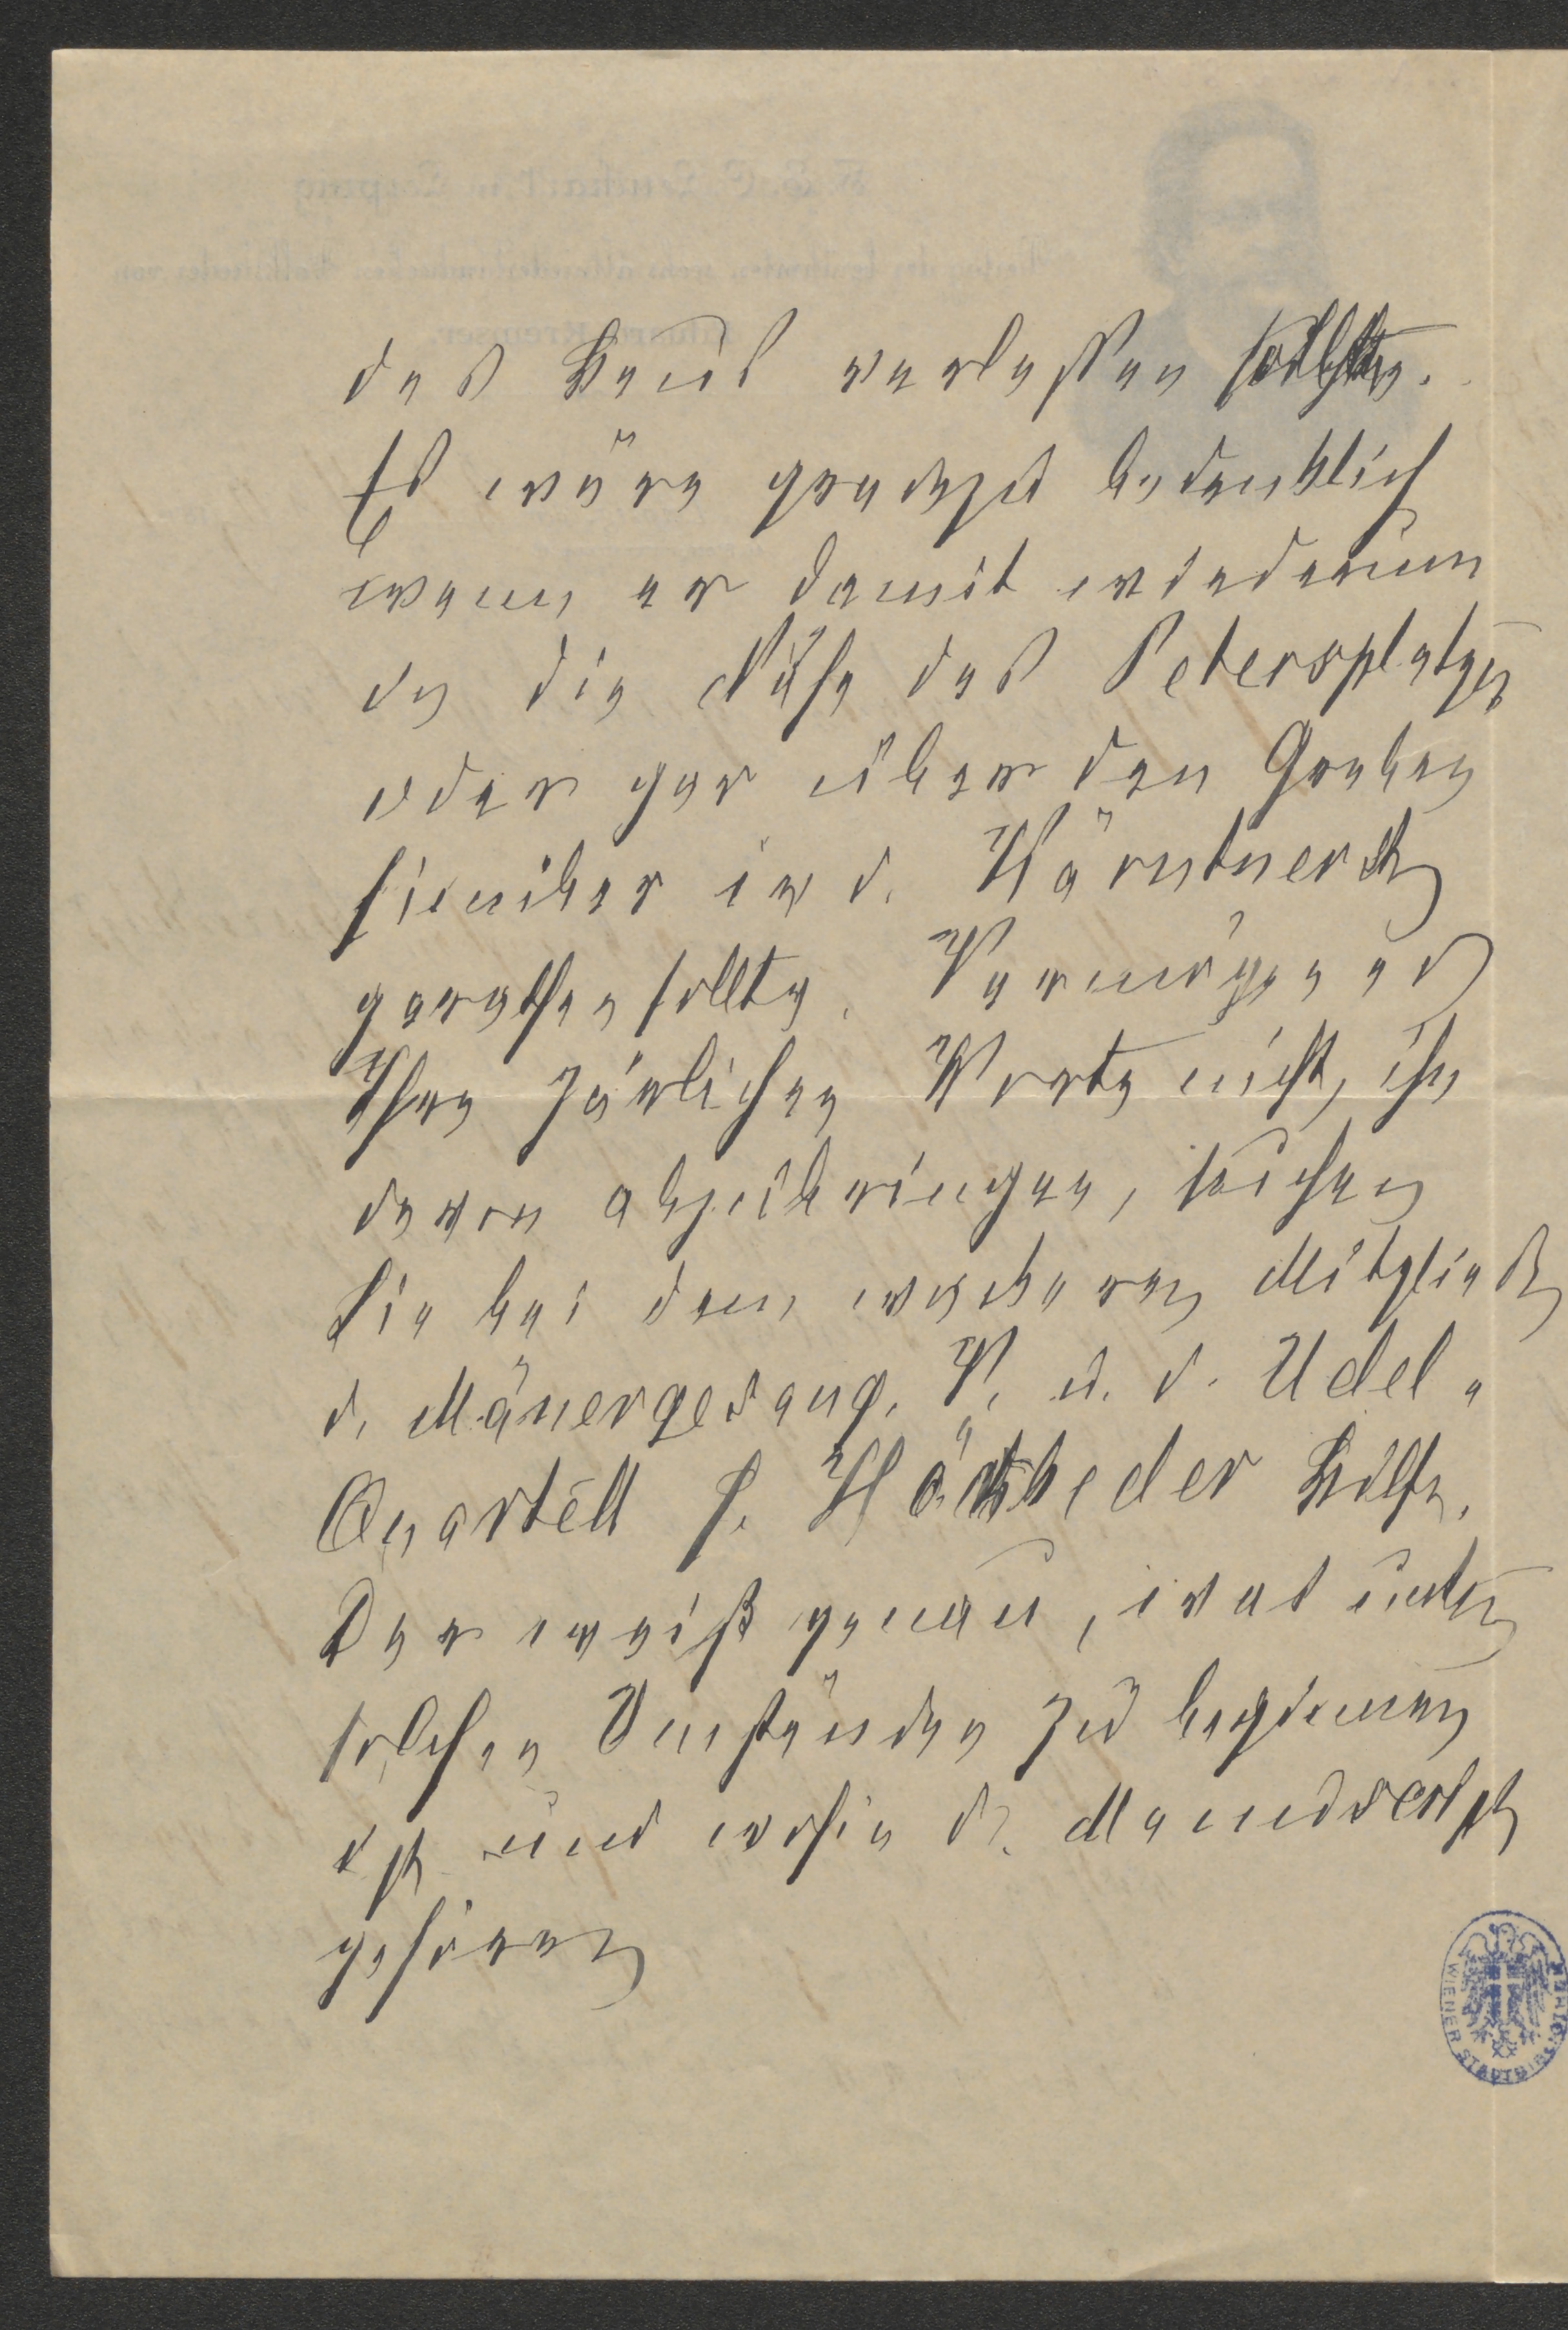 das Haus verlassen sollte.
Es wäre gradezu bedenklich
wenn er damit wiederum
in die Nähe des Petersplatzes
oder gar über den Graben
hinüber in d. Kärntnerstr
gerathen sollte. Vermögen es
Ihre zärlichen Worte nicht, ihn
davon abzubringen, suchen
Sie bei dem wackeren Mitglied
d. Mänergesang. V. u. d. Udel-
Quartett H. Hörbeder Hülfe.
Der weiß genau, was unter
solchen Umständen zu beginnen
ist und wohin d.
gehören
WIENER STADTBIBLIOTHEK